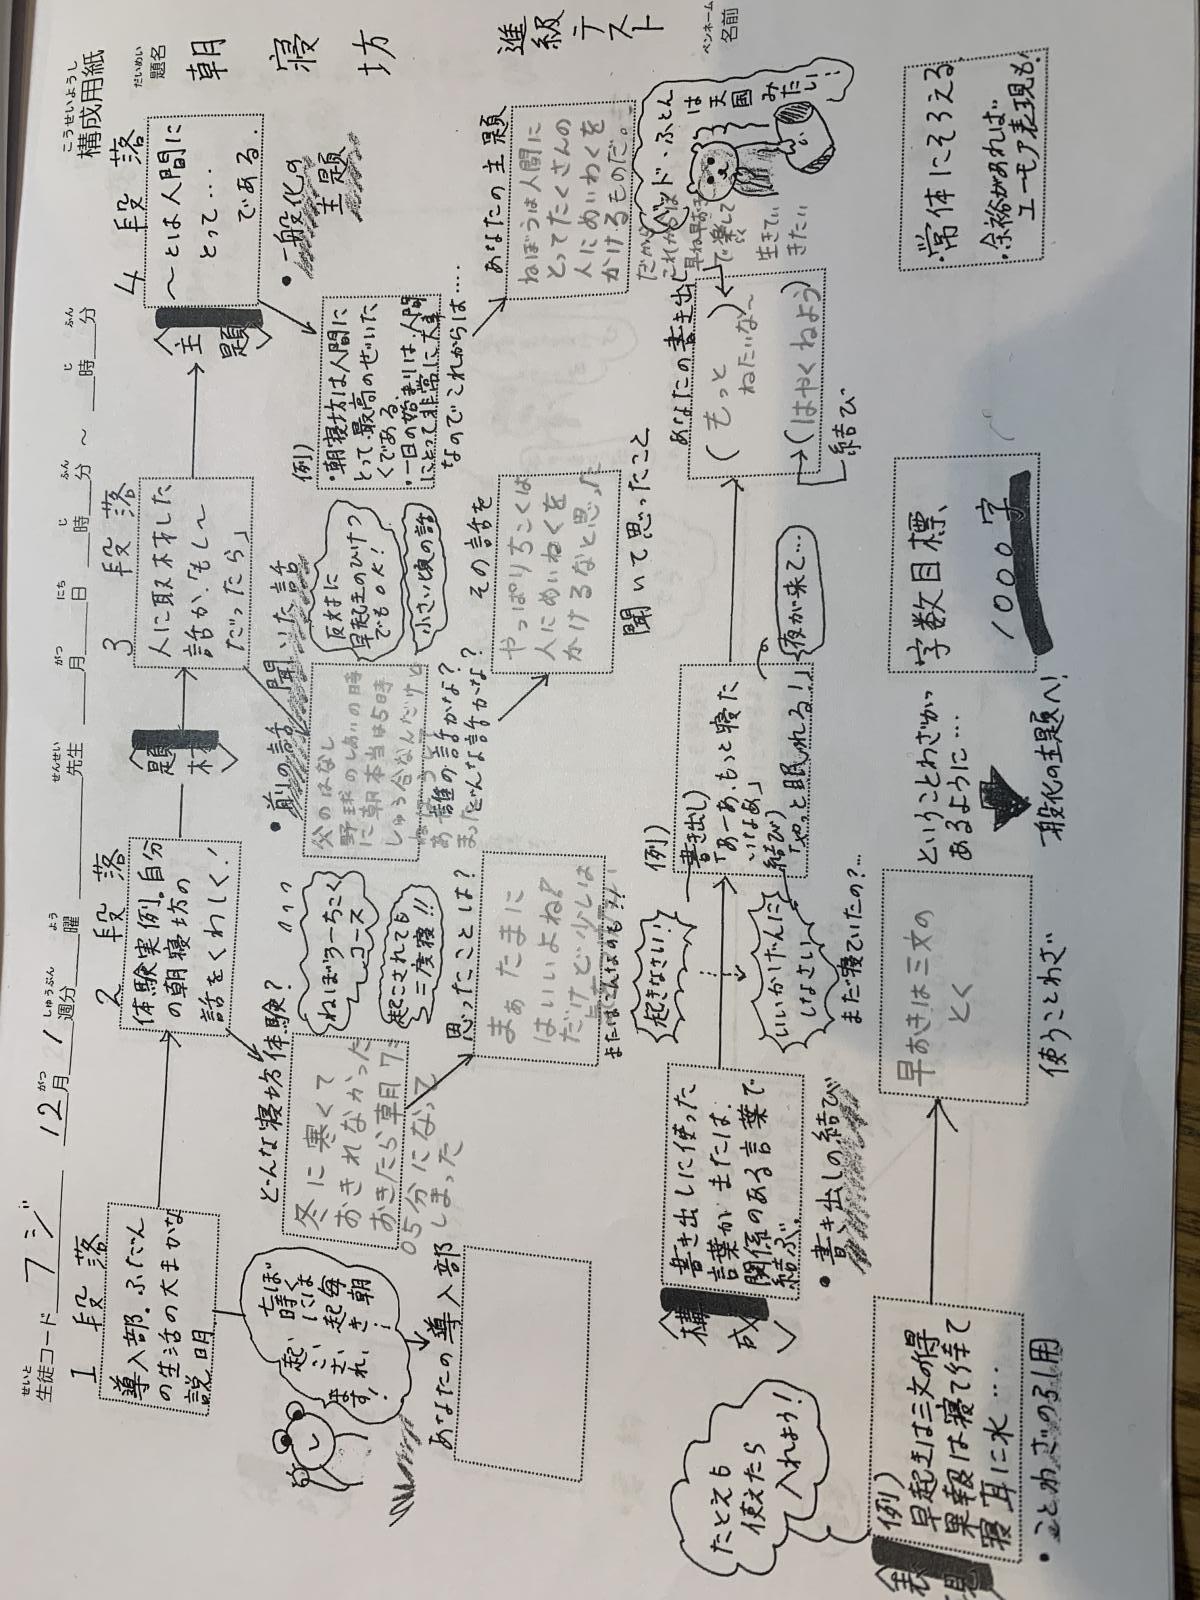 こうせいようし
構成用紙
せいと
生徒コード フジ
がつ しゅうぶん よう
12月 1週分 曜
せんせい
先生
がつ にち じ ふん じ ふん
月 日 時 分 ～ 時 分
だいめい
題名
朝寝坊
進級テスト
ペンネーム
名前
1段落
導入部。ふだん
の生活の大まかな
説明
ぼくは
毎朝
あなたの導入部
2段落
体験実例。自分
の朝寝坊の
話をくわしく！
どんな寝坊体験？
冬に寒くて
おきれなかった
おきたら朝7:
05分になって
しまった
ねぼう→ちこく
コース
起こされても
三度寝!!
思ったことは？
まぁたまに
はいいよね？
だけど少しは
〈題材〉
3段落
人に取材した
話か、「もし～
だったら」
・前の話 聞いた話
父のはなし
野球のしあいの時
に朝本当は5時
しゅう合なんだけど
反対に
早起きのひけつ
でもOK！
小さい頃の話
誰の話かな？
どんな話かな？
その話を
やっぱりちこくは
人にめいわくを
かけるなと思った
聞いて思ったこと
〈主題〉
4段落
～とは人間に
とって・・・
である.
・一般化の
主題
例）
・朝寝坊は人間に
とって最高のぜいた
くである.
・一日の始まりは、人間
にとって非常に大事
なのでこれからは・・・
あなたの主題
ねぼうは人間に
とってたくさんの
人にめいわくを
かけるものだ。
だから
これからは
早ね早おき
で楽して
生きてい
きたい
ベッド・ふとん
は天国
みたい！
〈構成〉
書き出しに使った
言葉か または、
関係のある言葉で
結ぶ。
・書き出しの結び
起きなさい！
いいかげんに
しなさい！
まだ寝ていたの？…
例）
書き出し）
「あーあ、もっと寝た
いなあ」
結び）
「やっと眠れる！」
夜が来て…
あなたの書き出し
（もっと
ねたいな～）
→（はやくねよう）
結び
たとえも
使えたら
入れよう！
〈表現〉
例）
早起きは三文の得
果報は寝て待て
寝耳に水・・・
・ことわざの引用
早おきは三文の
とく
使うことわざ
ということわざが
あるように…
一般化の主題へ！
字数目標
1000字
・常体にそろえる
・余裕があれば
ユーモア表現も！